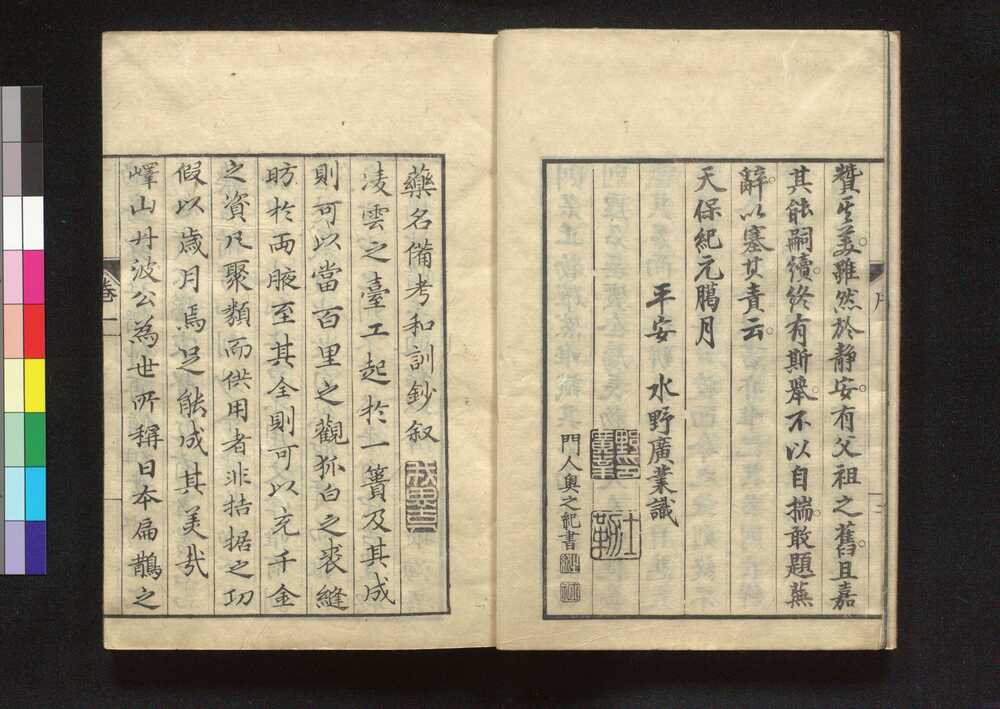 贊字美雖然於靜安有父祖之舊且嘉
其能嗣續終有斯舉不以自揣敢題蕪
辭以塞其責云
天保紀元臈月
平安 水野廣業識
門人奥之紀書
藥名備考和訓鈔叙
凌雲之臺工起於一簣及其成
則可以當百里之觀狐白之裘縫
昉於両腋至其全則可以充千金
之資凡聚類而供用者非拮据之功
假以歳月焉足能成其美哉
嶧山丹波公為世所稱日本扁鵲之
卷一